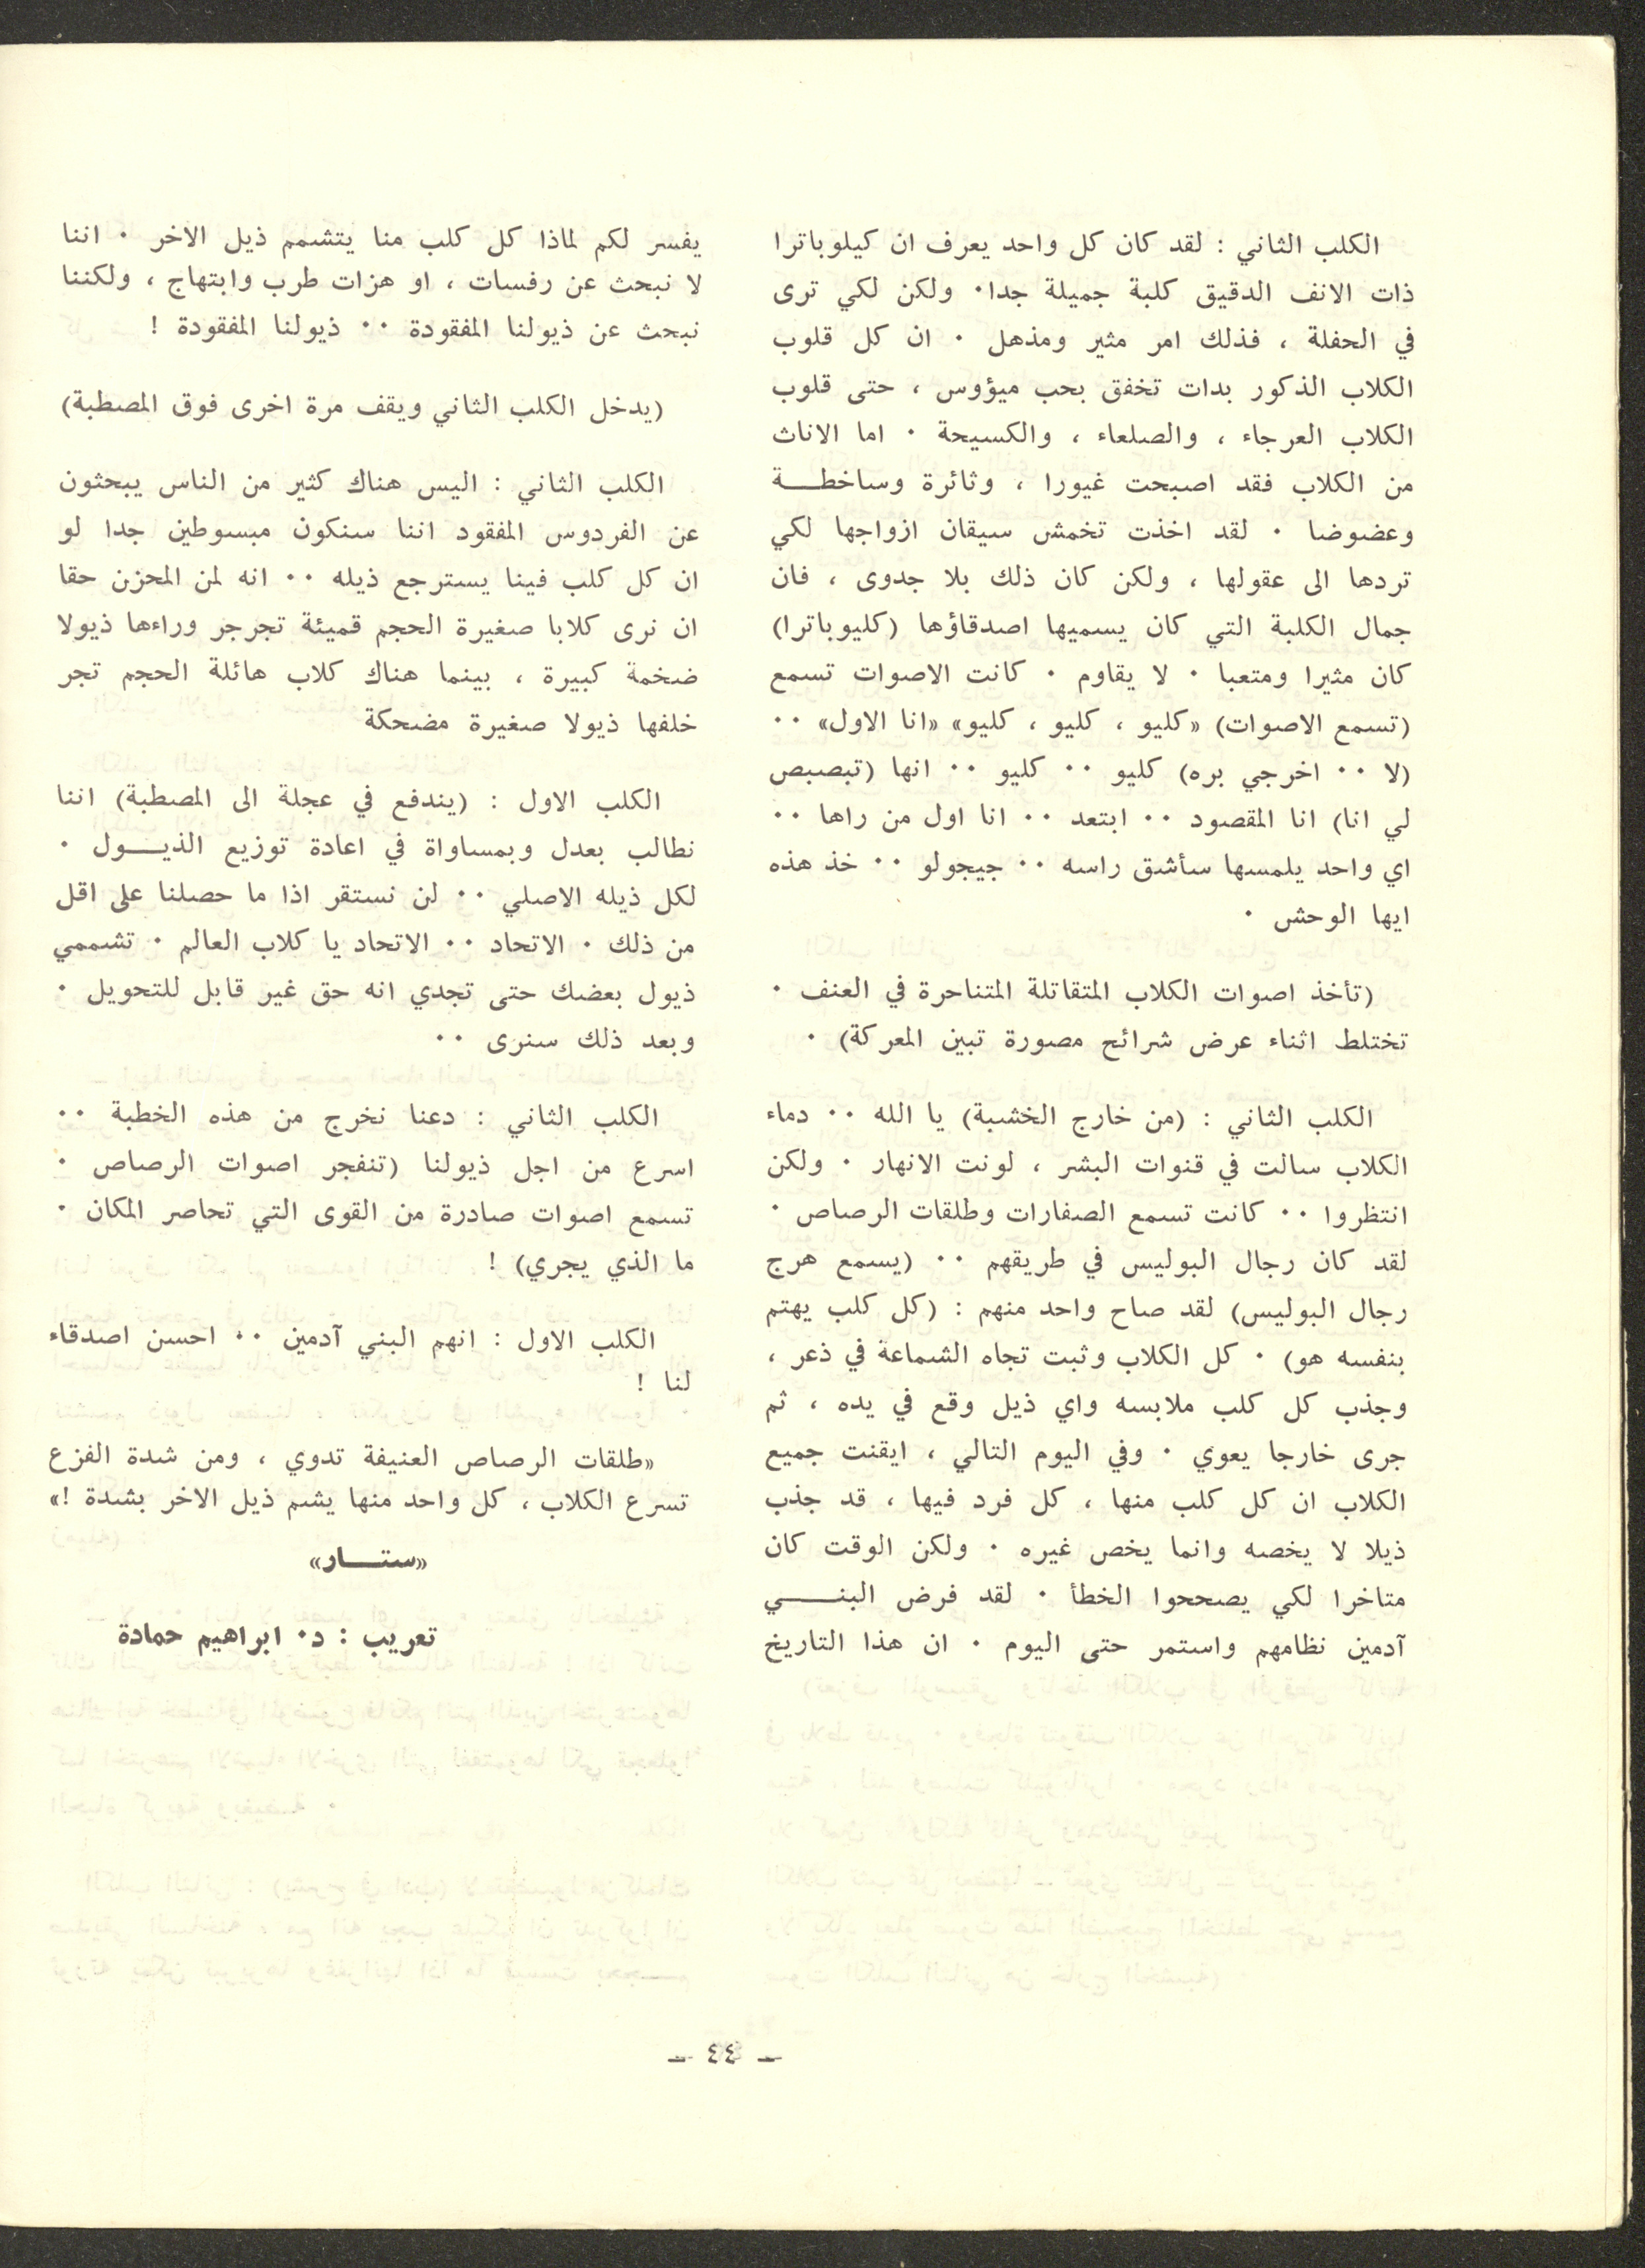 الكلب الثاني : لقد كان كل واحد يعرف ان كيلوباترا
ذات الانف الدقيق كلبة جميلة جدا٠ ولكن لكي ترى
في الحفلة ، فذلك امر مثير ومذهل ٠ ان كل قلوب
الكلاب الذكور بدات تخفق بحب ميؤوس ، حتى قلوب
الكلاب العرجاء ، والصلعاء ، والكسيحة ٠ اما الاناث
من الكلاب فقد اصبحت غيورا ، وثائرة وساخطـــة
وعضوضا ٠ لقد اخذت تخمش سيقان ازواجها لكي
تردها الى عقولها ، ولكن كان ذلك بلا جدوى ، فان
جمال الكلبة التي كان يسميها اصدقاؤها (كليوباترا)
كان مثيرا ومتعبا ٠ لا يقاوم ٠ كانت الاصوات تسمع
(تسمع الاصوات) «كليو ، كليو ، كليو» «انا الاول» ٠٠
(لا ٠٠ اخرجي بره) كليو ٠٠ كليو ٠٠ انها (تبصبص
لي انا) انا المقصود ٠٠ ابتعد ٠٠ انا اول من راها ٠٠
اي واحد يلمسها سأشق راسه ٠٠ جيجولو ٠٠ خذ هذه
ايها الوحش ٠
(تأخذ اصوات الكلاب المتقاتلة المتناحرة في العنف ٠
تختلط اثناء عرض شرائح مصورة تبين المعركة) ٠
الكلب الثاني : (من خارج الخشبة) يا الله ٠٠ دماء
الكلاب سالت في قنوات البشر ، لونت الانهار ٠ ولكن
انتظروا ٠٠ كانت تسمع الصفارات وطلقات الرصاص ٠
لقد كان رجال البوليس في طريقهم ٠٠ (يسمع هرج
رجال البوليس) لقد صاح واحد منهم : (كل كلب يهتم
بنفسه هو) ٠ كل الكلاب وثبت تجاه الشماعة في ذعر ،
وجذب كل كلب ملابسه واي ذيل وقع في يده ، ثم
جرى خارجا يعوي ٠ وفي اليوم التالي ، ايقنت جميع
الكلاب ان كل كلب منها ، كل فرد فيها ، قد جذب
ذيلا لا يخصه وانما يخص غيره ٠ ولكن الوقت كان
متاخرا لكي يصححوا الخطأ ٠ لقد فرض البنـــــي
آدمين نظامهم واستمر حتى اليوم ٠ ان هذا التاريخ
يفسر لكم لماذا كل كلب منا يتشمم ذيل الاخر ٠ اننا
لا نبحث عن رفسات ، او هزات طرب وابتهاج ، ولكننا
نبحث عن ذيولنا المفقودة ٠٠ ذيولنا المفقودة !
(يدخل الكلب الثاني ويقف مرة اخرى فوق المصطبة)
الكلب الثاني : اليس هناك كثير من الناس يبحثون
عن الفردوس المفقود اننا سنكون مبسوطين جدا لو
ان كل كلب فينا يسترجع ذيله ٠٠ انه لمن المحزن حقا
ان نرى كلابا صغيرة الحجم قميئة تجرجر وراءها ذيولا
ضخمة كبيرة ، بينما هناك كلاب هائلة الحجم تجر
خلفها ذيولا صغيرة مضحكة
الكلب الاول : (يندفع في عجلة الى المصطبة) اننا
نطالب بعدل وبمساواة في اعادة توزيع الذيـــول ٠
لكل ذيله الاصلي ٠٠ لن نستقر اذا ما حصلنا على اقل
من ذلك ٠ الاتحاد ٠٠ الاتحاد يا كلاب العالم ٠ تشممي
ذيول بعضك حتى تجدي انه حق غير قابل للتحويل ٠
وبعد ذلك سنرى ٠٠
الكلب الثاني : دعنا نخرج من هذه الخطبة ٠٠
اسرع من اجل ذيولنا (تنفجر اصوات الرصاص ٠
تسمع اصوات صادرة من القوى التي تحاصر المكان ٠
ما الذي يجري) !
الكلب الاول : انهم البني آدمين ٠٠ احسن اصدقاء
لنا !
«طلقات الرصاص العنيفة تدوي ، ومن شدة الفزع
تسرع الكلاب ، كل واحد منها يشم ذيل الاخر بشدة !»
«ستـــار»
تعريب : د٠ ابراهيم حمادة
ـ ٤٤ ـ